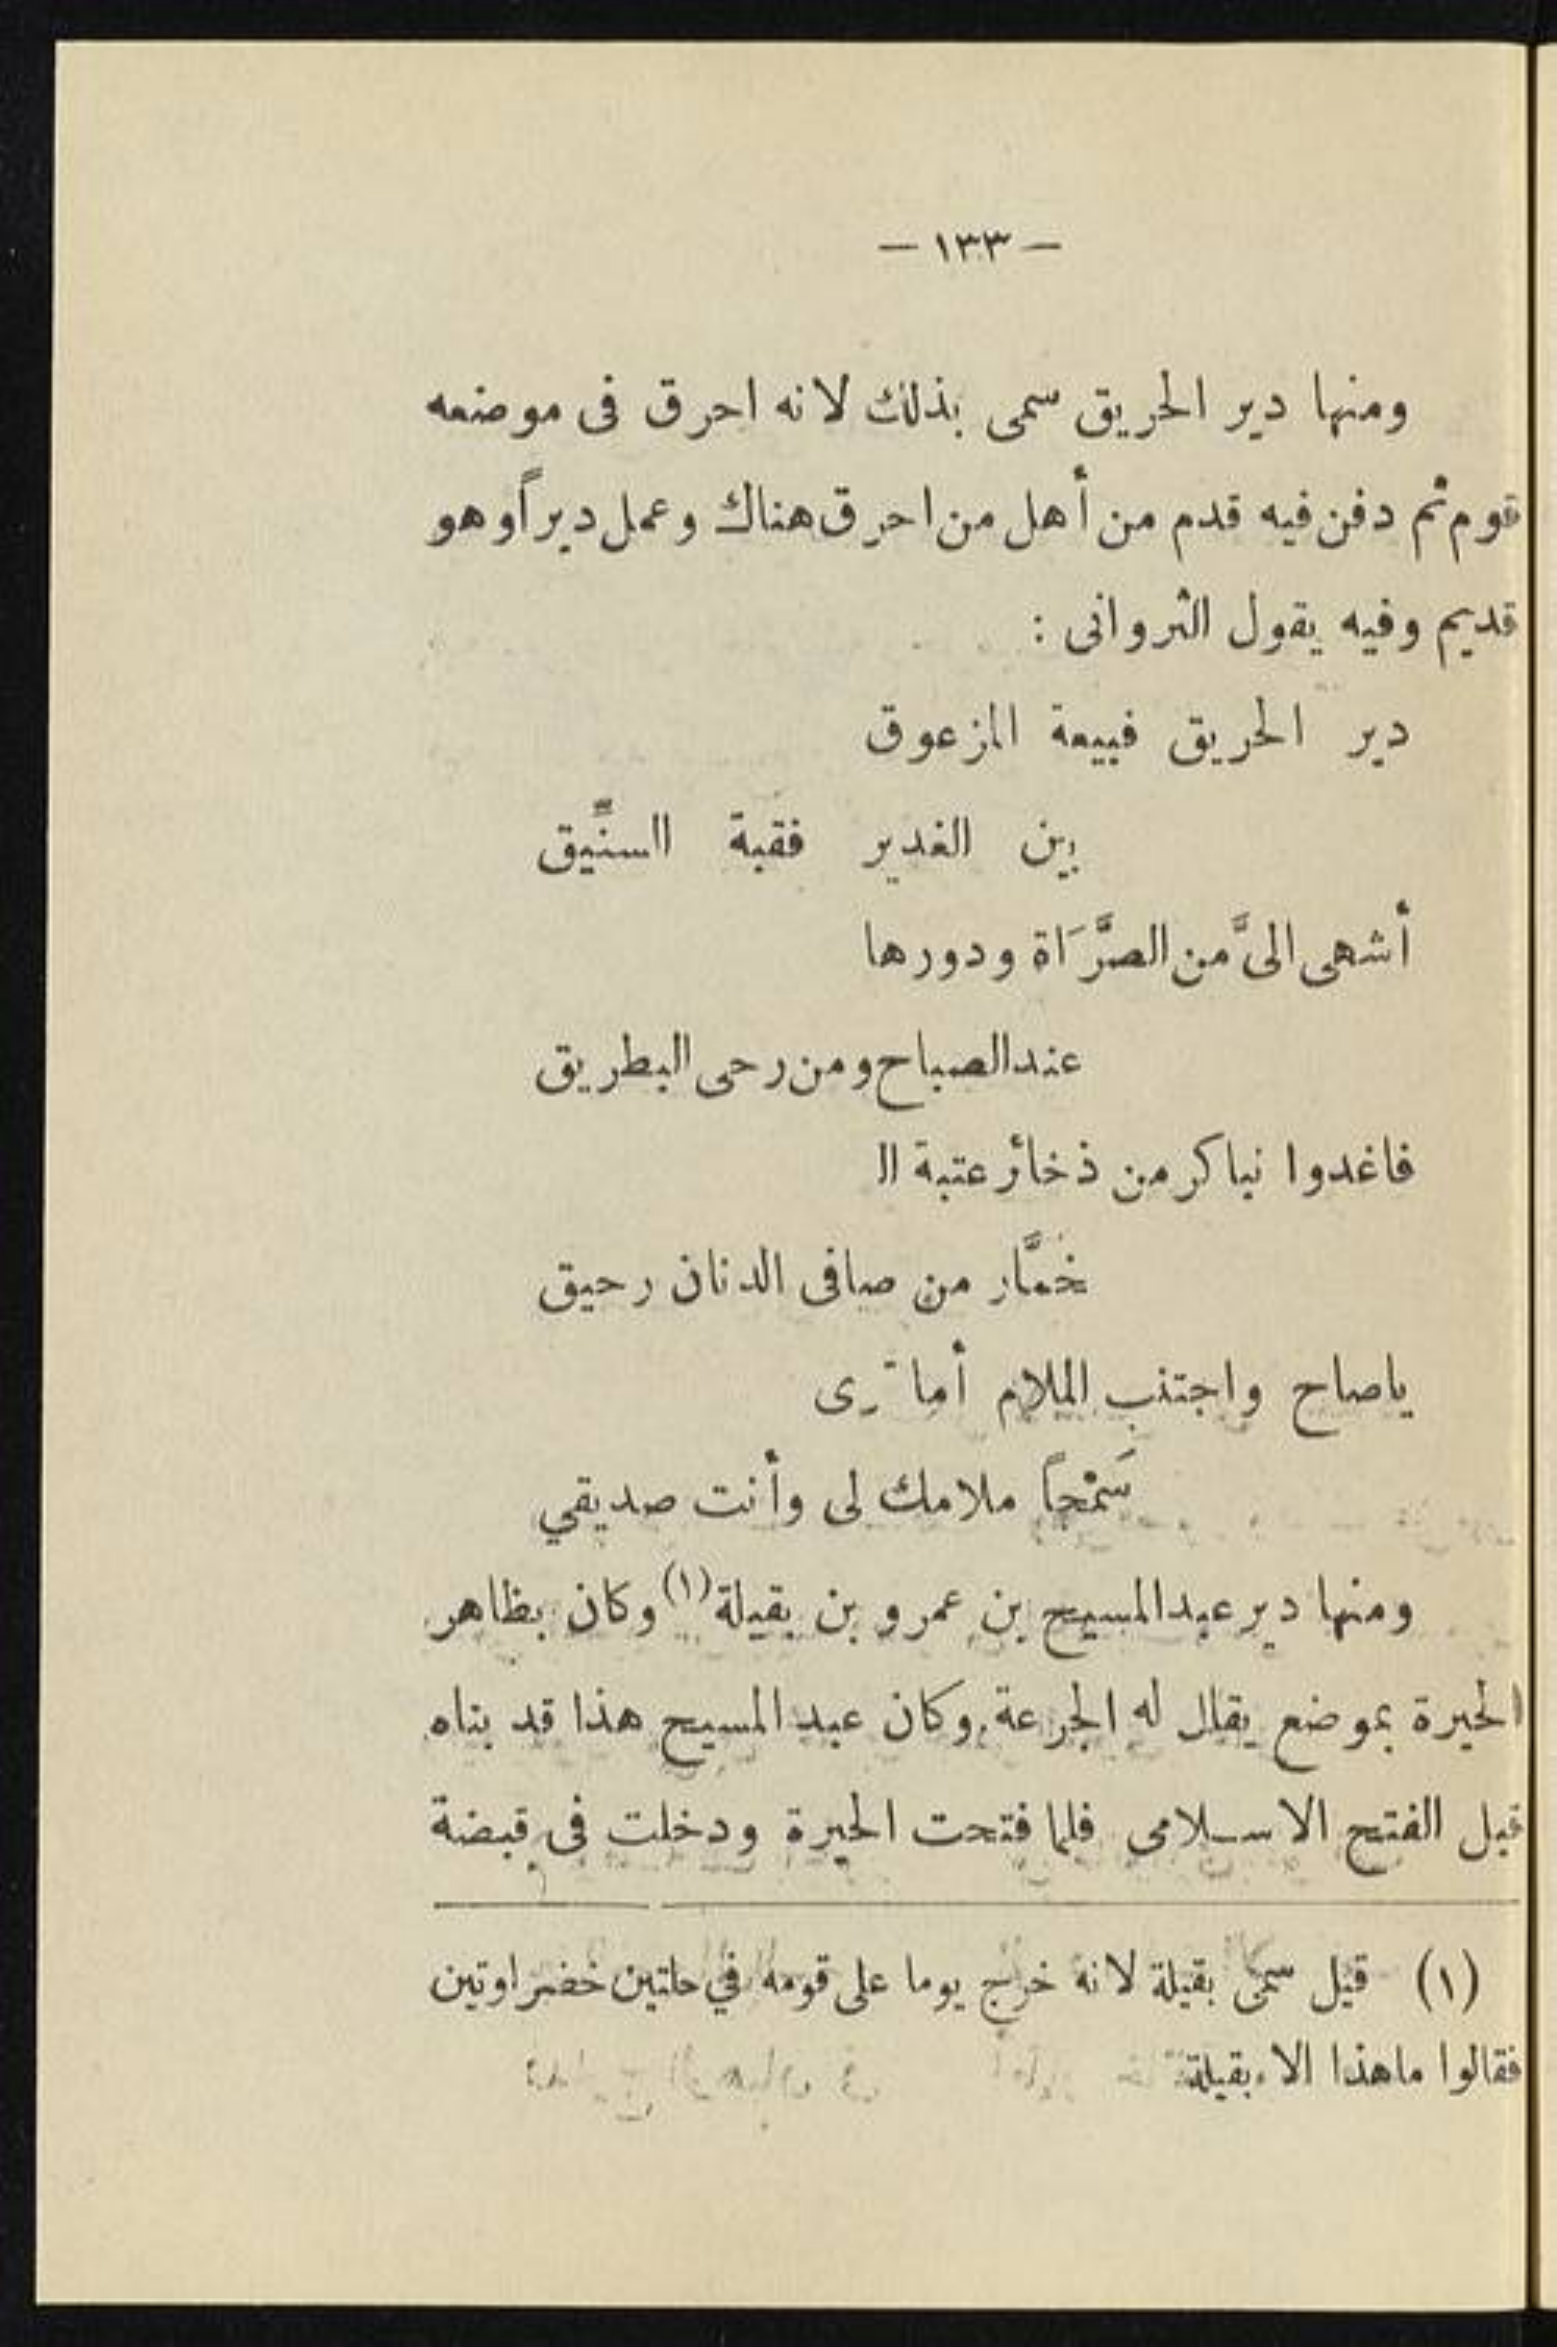 — ١٣٣ —
ومنها دير الحريق سمى بذلك لانه احرق فى موضعه
قوم ثم دفن فيه قدم من أهل من احرق هناك وعمل ديراً وهو
قديم وفيه يقول الثروانى :
دير الحريق فبيعة المزعوق
بين الغدير فقبة السنَّيق
أشهى الىَّ من الصَّرَاة ودورها
عند الصباح ومن رحى البطريق
فاغدوا نباكر من ذخائر عتبة ال
خَمَّار من صافى الدنان رحيق
ياصاح واجتنب الملام أما ترى
سَمْحاً ملامك لى وأنت صديقي
ومنها دير عبد المسيح بن عمرو بن بقيلة (١) وكان بظاهر
الحيرة بموضع يقال له الجرعة وكان عبد المسيح هذا قد بناه
قبل الفتح الاسلامى فلما فتحت الحيرة ودخلت فى قبضة
(١) قيل سمى بقيلة لانه خرج يوما على قومه في حلتين خضراوتين
فقالوا ماهذا الا بقيلة